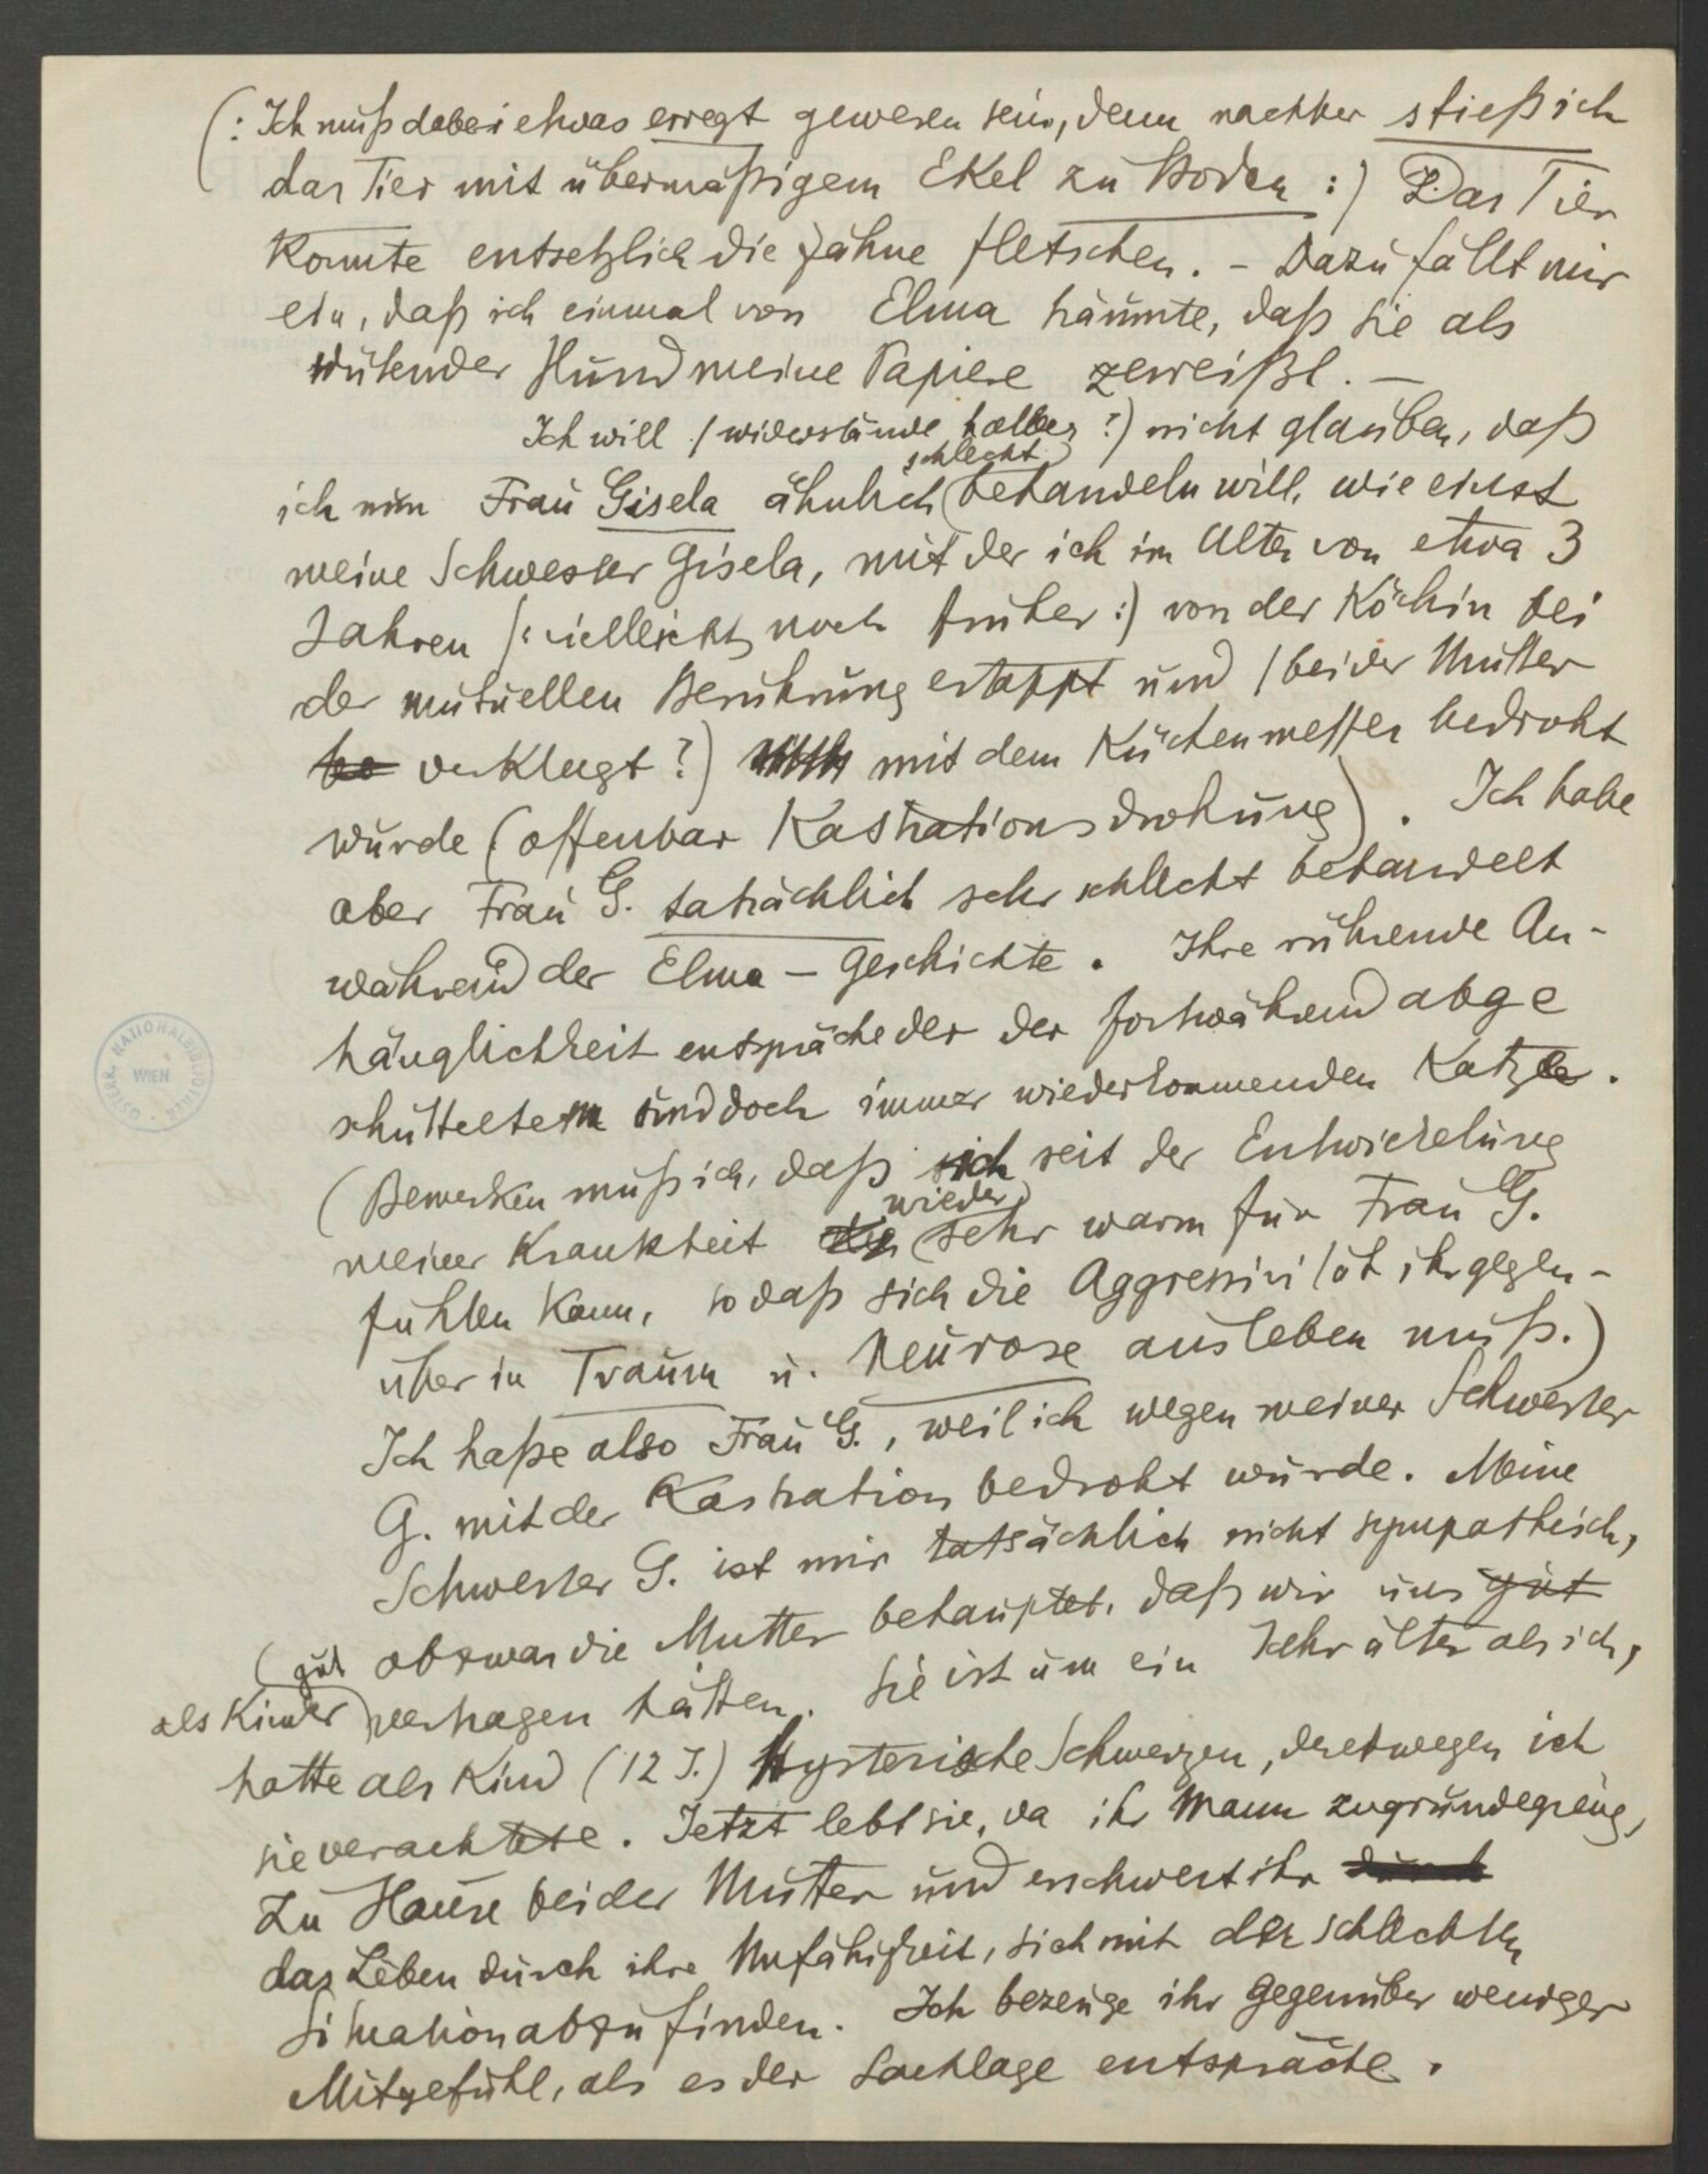 (: Ich muß dabei etwas erregt gewesen sein, denn nachher stieß ich
das Tier mit übermäßigem Ekel zu Boden :) Das Tier
konnte entsetzlich die Zähne fletschen. – Dazu fällt mir
ein, daß ich einmal von Elma träumte, daß sie als
wütender Hund meine Papiere zerreißt. –
Ich will (widerstände halber ?) nicht glauben, daß
ich nun Frau Gisela ähnlich schlecht behandeln will, wie einst
meine Schwester Gisela, mit der ich im Alter von etwa 3
Jahren (: vielleicht noch früher :) von der Köchin bei
der mutuellen Berührung ertappt und (bei der Mutter
verklagt ?) mit dem Küchenmesser bedroht
wurde (offenbar Kastrationsdrohung). Ich habe
aber Frau G. tatsächlich sehr schlecht behandelt
während der Elma – Geschichte. Ihre rührende An-
hänglichkeit entspräche der der fortwährend abge
schüttelten und doch immer wiederkommenden Katze.
(Bemerken muß ich, daß ich seit der Entwickelung
meiner Krankheit wieder sehr warm für Frau G.
fühlen kann, so daß sich die Aggressivität ihr gegen-
über in Traum u. Neurose ausleben muß.)
Ich haße also Frau G., weil ich wegen meiner Schwester
G. mit der Kastration bedroht wurde. Meine
Schwester G. ist mir tatsächlich nicht sympathisch,
obzwar die Mutter behauptet, daß wir uns gut
(gut als Kinder) vertragen hätten. Sie ist um ein Jahr älter als ich,
hatte als Kind (12 J.) hysterische Schmerzen, deretwegen ich
sie verachtete. Jetzt lebt sie, da ihr Mann zugrundegieng,
zu Hause bei der Mutter und erschwert ihr durch
das Leben durch ihre Unfähigkeit, sich mit der schlechten
Situation abzufinden. Ich bezeuge ihr gegenüber weniger
Mitgefühl, als es der Sachlage entspräche.
ÖSTERR. NATIONALBIBLIOTHEK
WIEN